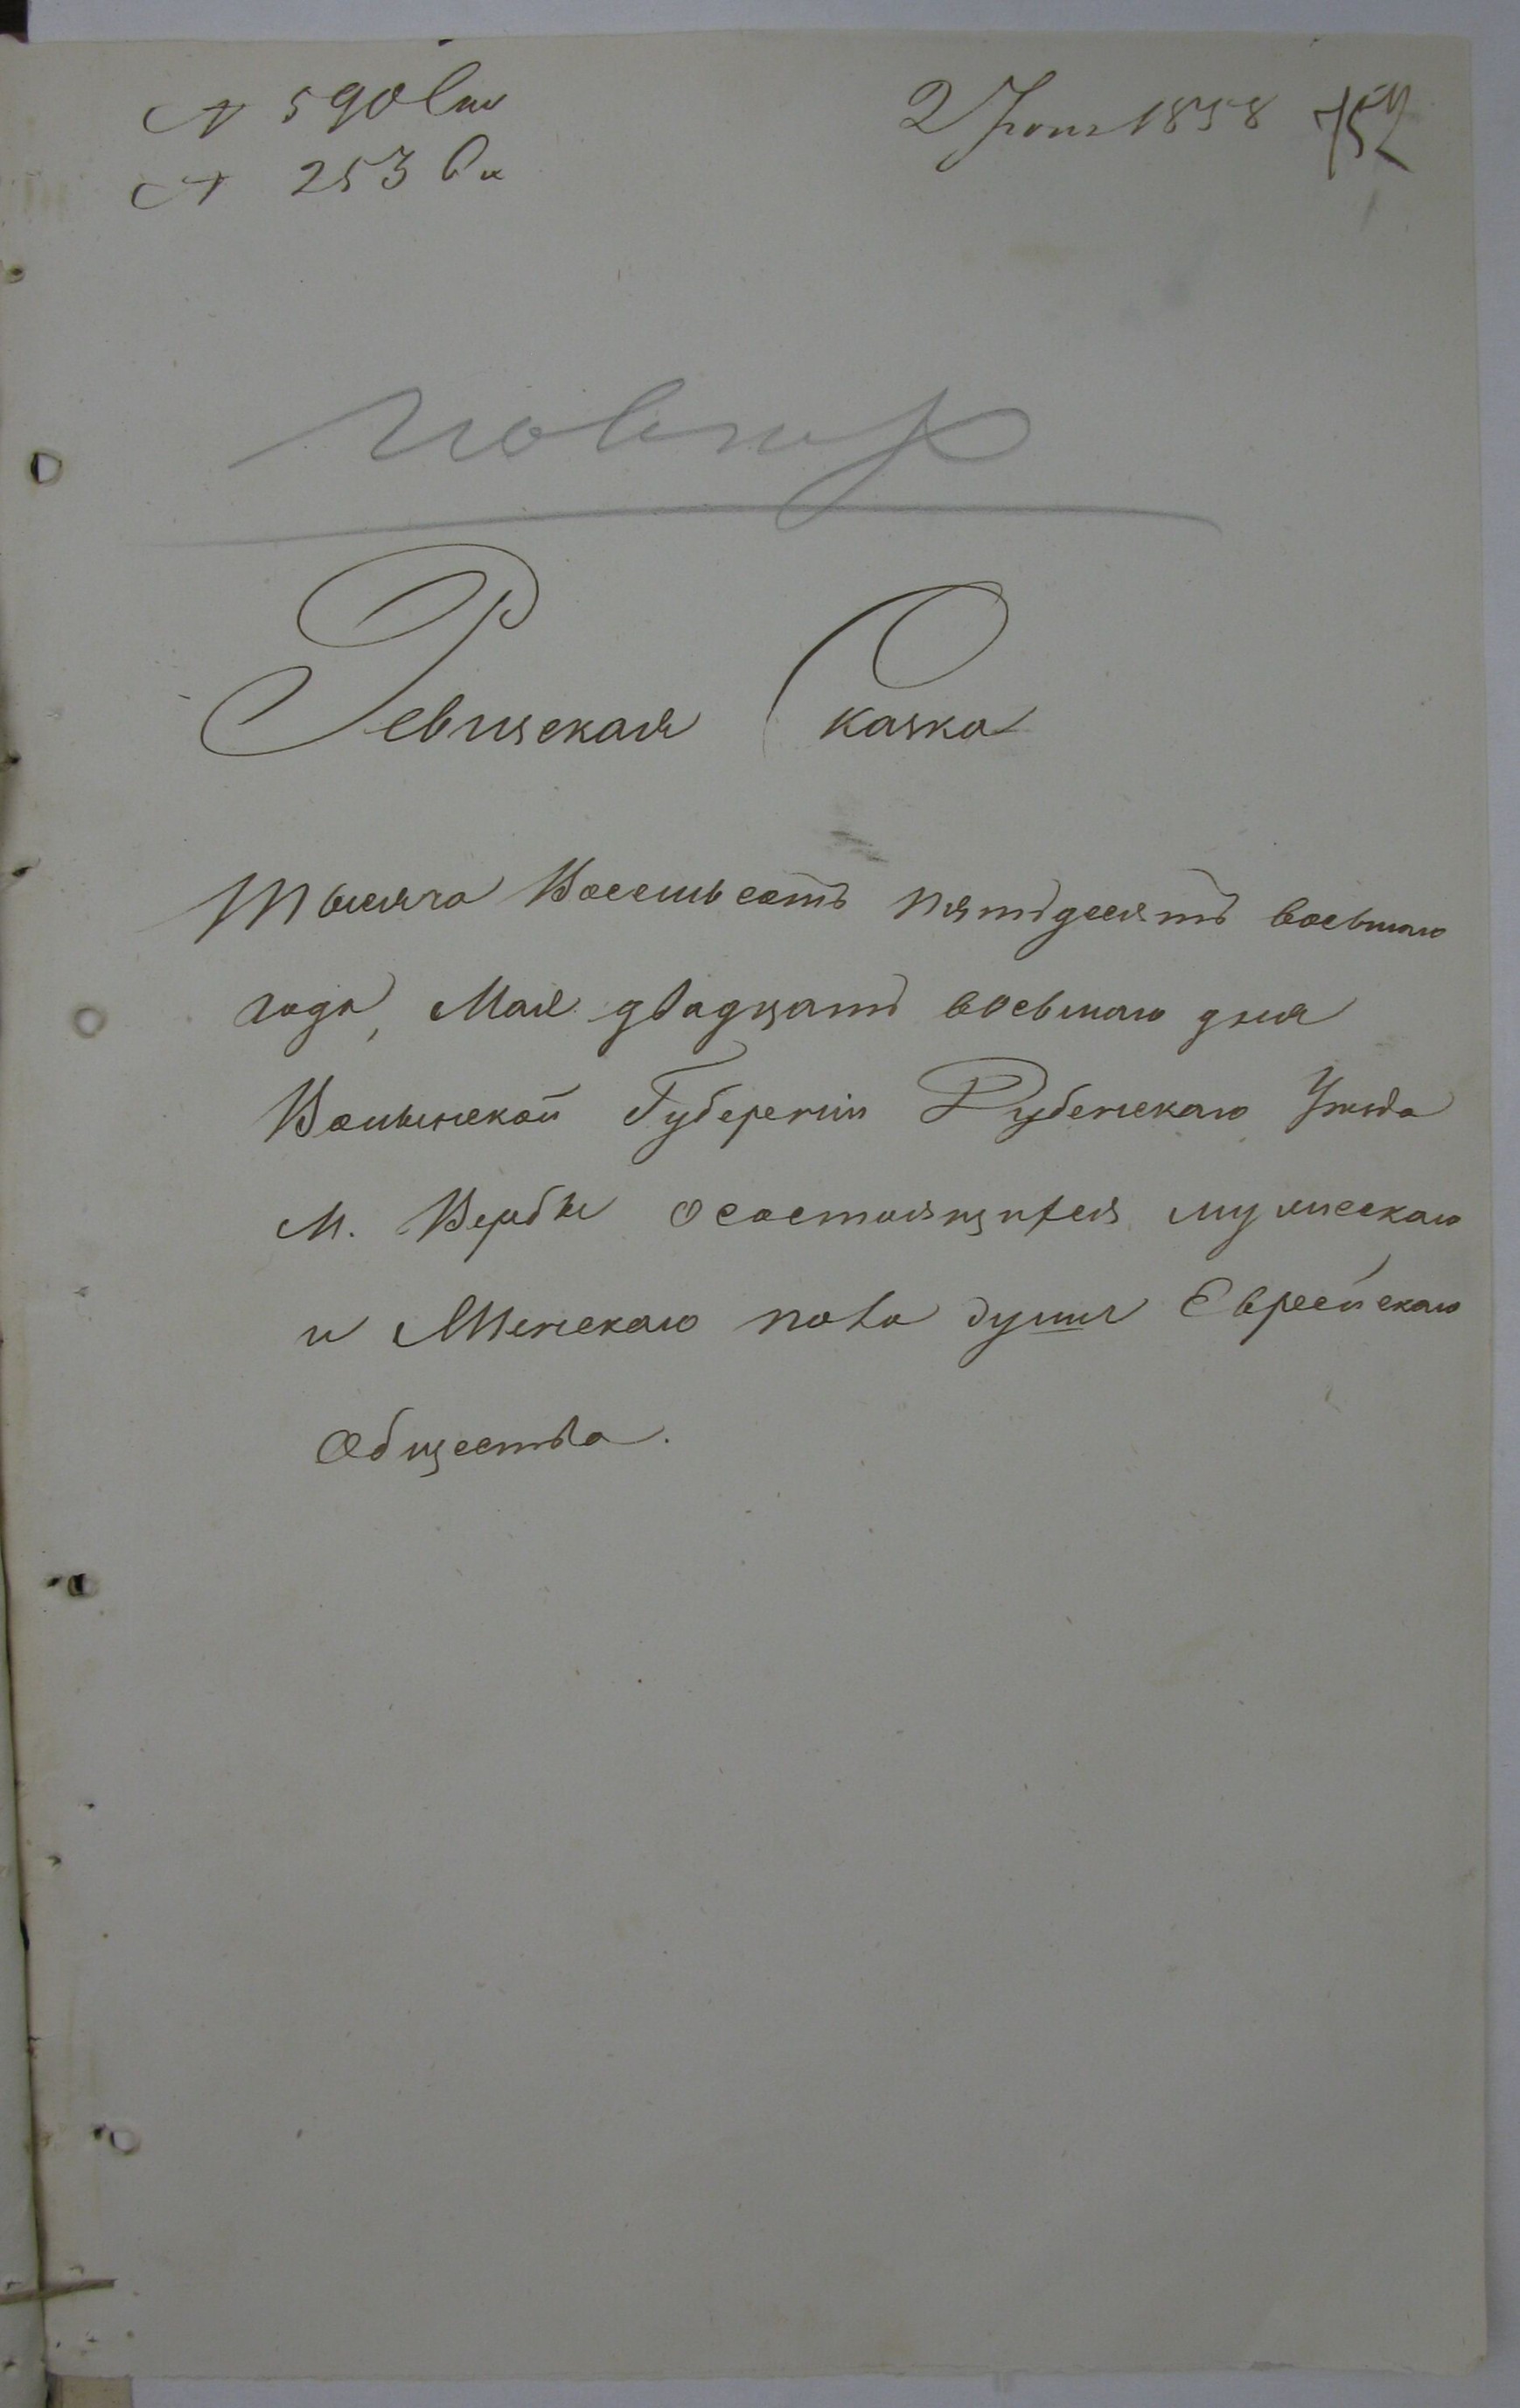 № 590
2 Июня 1858
№ 253
повтор
Ревизская Сказка
Тысяча Восемьсотъ пятьдесятъ восьмаго
года, Мая двадцать восьмаго дня
Волынской Губерніи Дубенскаго Уѣзда
М. Вербы о состоящихся мужескаго
и Женскаго пола душъ Еврейскаго
Общества.